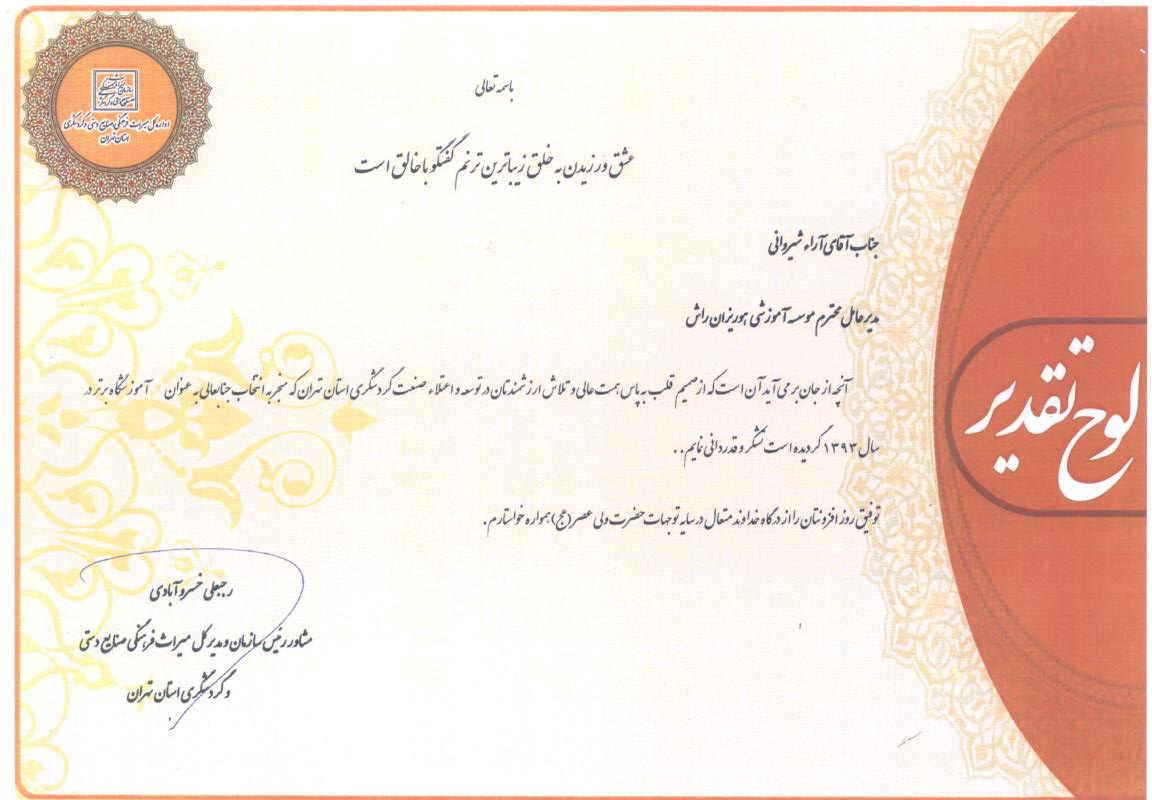 باسمه تعالی
عشق ورزیدن به خلق زیباترین ترنم گفتگو با خالق است
جناب آقای آراء شیروانی
مدیر عامل محترم موسسه آموزشی هوریزان راش
آنچه از جان بر می آید آن است که از صمیم قلب به پاس همت عالی و تلاش ارزشمندتان در توسعه و اعتلاء صنعت گردشگری استان تهران که منجر به انتخاب جنابعالی به عنوان آموزشگاه برتر در
سال ۱۳۹۳ گردیده است تشکر و قدردانی نمایم..
توفیق روز افزونتان را از درگاه خداوند متعال در سایه توجهات حضرت ولی عصر (عج) همواره خواستارم.
رجبعلی خسروآبادی
مشاور رئیس سازمان و مدیر کل میراث فرهنگی صنایع دستی
و گردشگری استان تهران
لوح تقدیر
اداره کل میراث فرهنگی، صنایع دستی و گردشگری
استان تهران